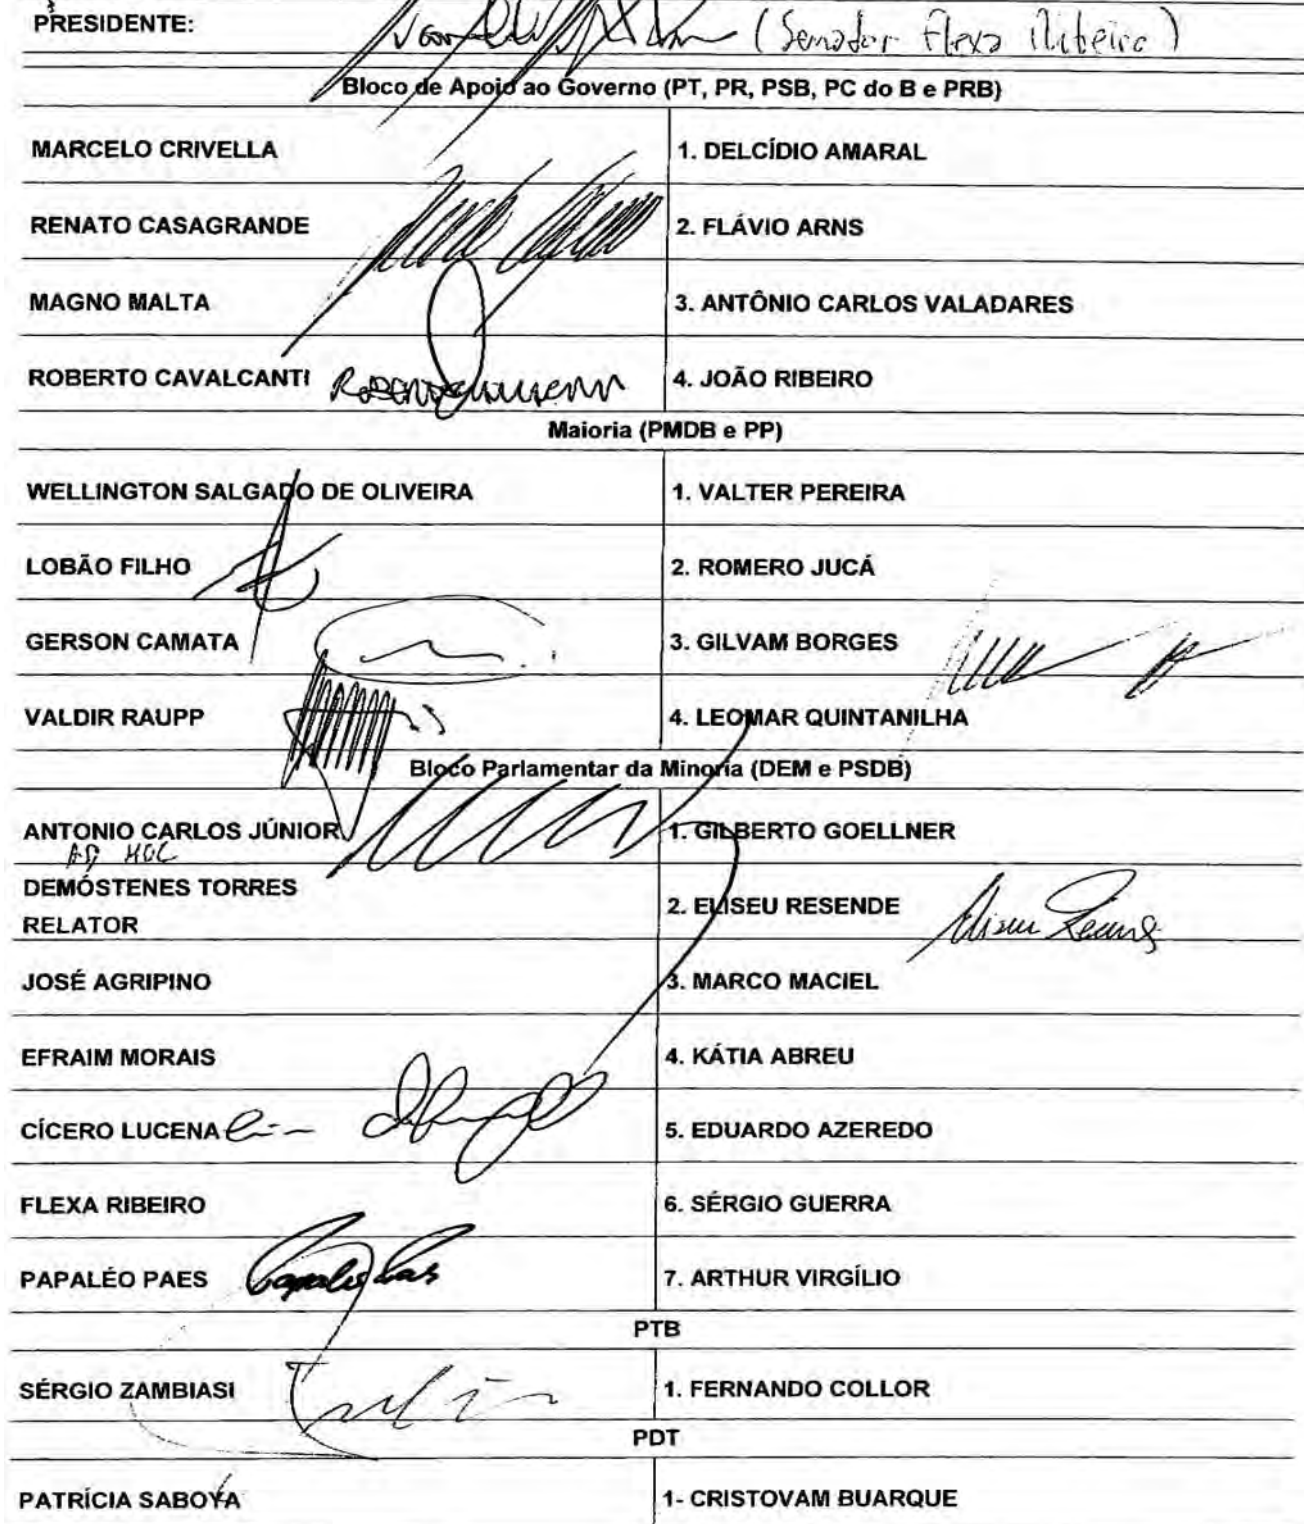 PRESIDENTE: (Senador Flexa Ribeiro)
Bloco de Apoio ao Governo (PT, PR, PSB, PC do B e PRB)
MARCELO CRIVELLA 1. DELCÍDIO AMARAL
RENATO CASAGRANDE 2. FLÁVIO ARNS
MAGNO MALTA 3. ANTÔNIO CARLOS VALADARES
ROBERTO CAVALCANTI 4. JOÃO RIBEIRO
Maioria (PMDB e PP)
WELLINGTON SALGADO DE OLIVEIRA 1. VALTER PEREIRA
LOBÃO FILHO 2. ROMERO JUCÁ
GERSON CAMATA 3. GILVAM BORGES
VALDIR RAUPP 4. LEOMAR QUINTANILHA
Bloco Parlamentar da Minoria (DEM e PSDB)
ANTONIO CARLOS JÚNIOR 1. GILBERTO GOELLNER
AD HOC
DEMÓSTENES TORRES
RELATOR 2. ELISEU RESENDE
JOSÉ AGRIPINO 3. MARCO MACIEL
EFRAIM MORAIS 4. KÁTIA ABREU
CÍCERO LUCENA 5. EDUARDO AZEREDO
FLEXA RIBEIRO 6. SÉRGIO GUERRA
PAPALÉO PAES 7. ARTHUR VIRGÍLIO
PTB
SÉRGIO ZAMBIASI 1. FERNANDO COLLOR
PDT
PATRÍCIA SABOYA 1- CRISTOVAM BUARQUE